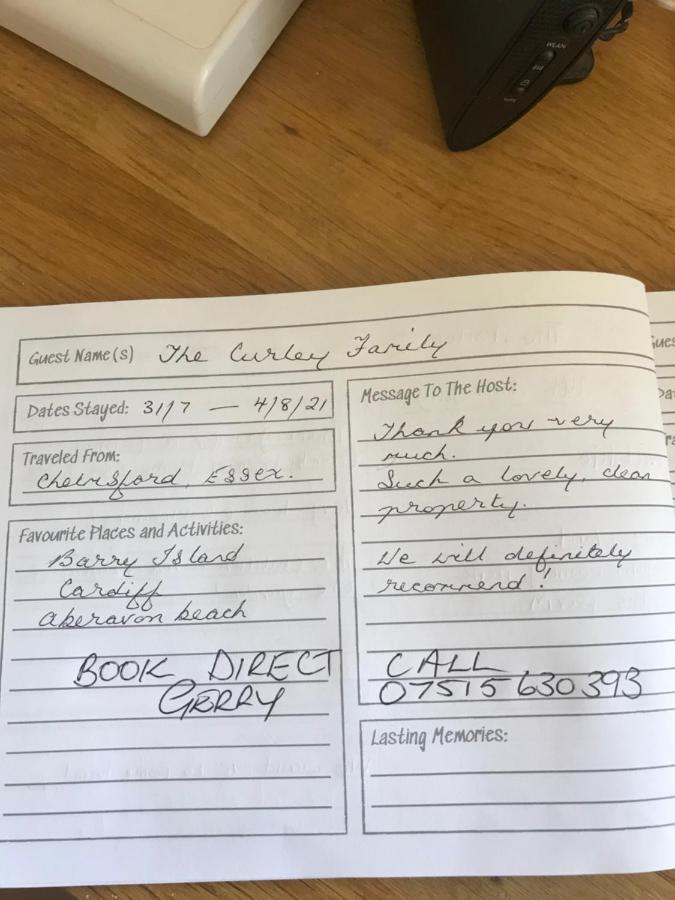 WLAN
Guest Name(s) The Curley Family
Dates Stayed: 31/7 — 4/8/21
Traveled From:
Chelmsford, Essex.
Favourite Places and Activities:
Barry Island
Cardiff
Aberavon beach
BOOK DIRECT
GERRY
Message To The Host:
Thank you very
much.
Such a lovely, clean
property.
We will definitely
recommend!
CALL
07515 630 393
Lasting Memories: